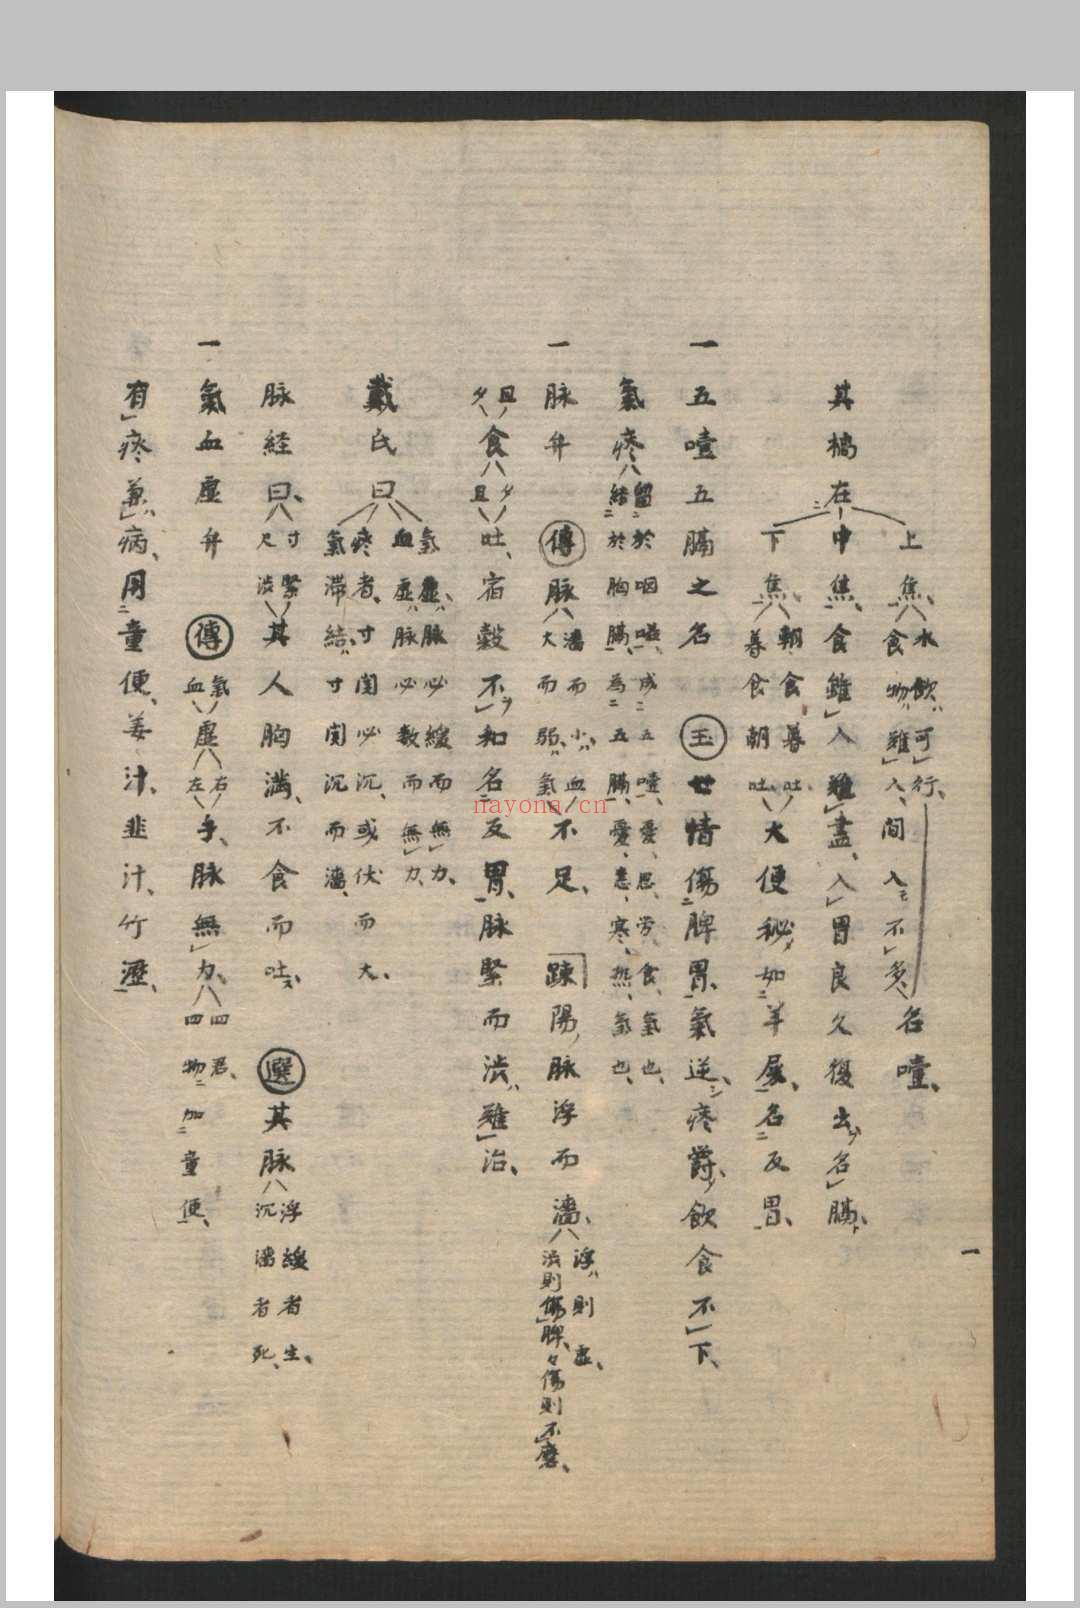 上焦水飲可行
食物難入間入不多名噎
其槁在中焦食雖入難盡入胃良久復出名膈
下焦朝食暮吐
暮食朝吐大便秘如羊屎名反胃
一五噎五膈之名 玉 世情傷脾胃氣逆疼爵飲食不下
氣疼留於咽嗌成五噎憂思労食氣也
結於胸膈為五膈憂恚寒热氣也
一脉弁 傳 脉濇而小血不足
大而弱氣 趺陽脉浮而濇浮則虚
渋則傷脾々傷則不磨
旦食夕吐
夕食旦吐宿穀不和名反胃脉緊而渋難治
戴氏曰氣虚脉必緩而無力
血虚脉必数而無力
疼者寸関必沉或伏而大
氣滞結寸関沉而濇
脉経曰寸緊尺渋其人胸満不食而吐 選 其脉浮緩者生
沉濇者死
一氣血虚弁 傳 氣虚右手脉無力四君
血左四物加童便
有疼兼病用童便姜汁韭汁竹瀝
一
nayona.cn